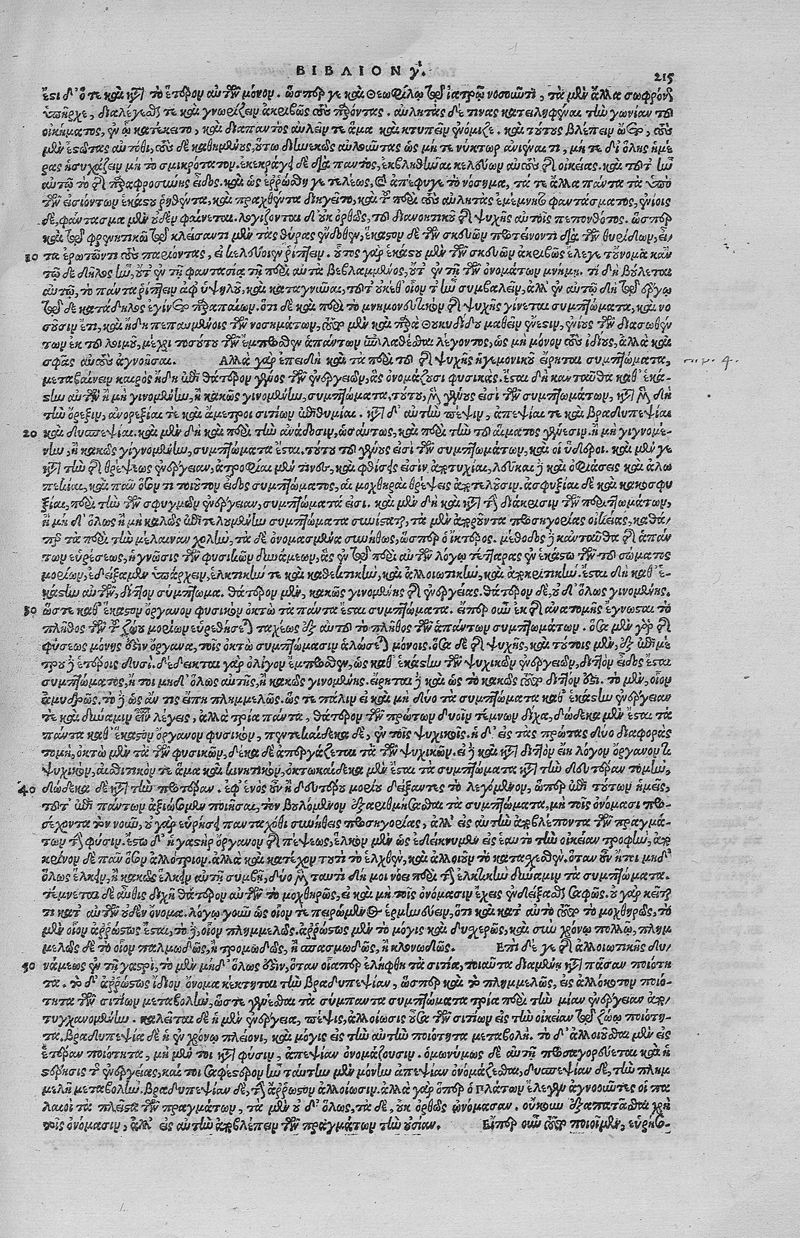 ΒΙΒΛΙΟΝ γ´.
215
ἔστι δ' ὅτε καὶ κατὰ τὸ ἕτερον αὐτῶν μόνον. ὥσπερ γε καὶ Θεοφίλῳ τῷ ἰατρῷ νοσοῦντι, τὰ μὲν ἄλλα σωφρόνως
ὑπῆρχε, διαλέγεσθαί τε καὶ γνωρίζειν ἀκριβῶς τοὺς παρόντας. αὐλητὰς δέ τινας κατειληφέναι τὴν γωνίαν τοῦ
οἰκήματος, ἐν ᾧ κατέκειτο, καὶ διαπαντὸς αὐλεῖν τε ἅμα καὶ κτυπεῖν ἐνόμιζε. καὶ τούτους βλέπειν ᾤετο, τοὺς
μὲν ἑστῶτας αὐτόθι, τοὺς δὲ καθημένους, οὕτω διηνεκῶς αὐλοῦντας ὡς μήτε νύκτωρ ἀνιέναι τι, μήτε δι' ὅλης ἡμέ
ρας ἡσυχάζειν μὴ τὸ σμικρότατον. ἐκεκράγει δὲ διὰ παντὸς, ἐκβληθῆναι κελεύων αὐτοὺς τῆς οἰκείας. καὶ τοῦτ' ἦν
αὐτῷ τὸ τῆς παραφροσύνης εἶδος. καὶ ὡς ἐρρώσθη γε τελέως, καὶ ἀπέφυγε τὸ νόσημα, τά τε ἄλλα πάντα τὰ ὑπὸ
τῶν εἰσιόντων ἑκάστου ῥηθέντα, καὶ πραχθέντα διηγεῖτο, καὶ τοῦ περὶ τοὺς αὐλητὰς ἐμέμνητο φαντάσματος, ἐνίοις
δὲ, φάντασμα μὲν οὐδὲν φαίνεται. λογίζονται δ' οὐκ ὀρθῶς, τοῦ διανοητικοῦ τῆς ψυχῆς αὐτοῖς πεπονθότος. ὥσπερ
καὶ τῷ φρενητικῷ τῷ κλείσαντι μὲν τὰς θύρας ἔνδοθεν, ἕκαστον δὲ τῶν σκευῶν προτείνοντι διὰ τῶν θυρίδων, εἶ
10 τα ἐρωτῶντι τοὺς παριόντας, εἰ κελεύοιεν ῥίπτειν. οὗτος γὰρ ἑκάστου μὲν τῶν σκευῶν ἀκριβῶς ἔλεγε τοὔνομα κἀν
τῷδε δῆλος ἦν, οὔτ' ἐν τῇ φαντασίᾳ τῇ περὶ αὐτὰ βεβλαμμένος, οὔτ' ἐν τῇ τῶν ὀνομάτων μνήμῃ. τί δὴ βούλεται
αὐτῷ, τὸ πάντα ῥίπτειν ἀφ' ὑψηλοῦ, καὶ καταγνύναι, τοῦτ' οὐκέθ' οἷόν τ' ἦν συμβαλεῖν, ἀλλ' ἐν αὐτῷ δὴ τῷ ἔργῳ
τῷδε κατάδηλος ἐγίνετο παραπαίων. ὅτι δὲ καὶ περὶ τὸ μνημονευτικὸν τῆς ψυχῆς γίνεται συμπτώματα, καὶ νο
σοῦσιν ἔτι, καὶ ἤδη πεπαυμένοις τῶν νοσημάτων, ἔστι μὲν καὶ παρὰ Θουκυδίδου μαθεῖν ἔνεστιν, ἐνίους τῶν διασωθέν
των ἐκ τοῦ λοιμοῦ, μέχρι τοσούτου τῶν ἔμπροσθεν ἁπάντων ἐπιλαθέσθαι λέγοντος, ὡς μὴ μόνον τοὺς ἰδίους, ἀλλὰ καὶ
σφᾶς αὐτοὺς ἀγνοῆσαι. Ἀλλὰ γὰρ ἐπειδὴ καὶ τὰ περὶ τοῦ τῆς ψυχῆς ἡγεμονικοῦ εἴρηται συμπτώματα,
μεταβαίνειν καιρὸς ἤδη ἐπὶ θάτερον γένος τῶν ἐνεργειῶν, ἃς ὀνομάζουσι φυσικάς. ἔσται δὴ κἀνταῦθα καθ' ἑκά
στην αὐτῶν ἢ μὴ γινομένην, ἢ κακῶς γινομένην, συμπτώματα. τούτου γὰρ τοῦ γένους εἰσὶ τῶν συμπτωμάτων, κατὰ μὲν δὴ
τὴν ὄρεξιν, ἀνορεξίαι τε καὶ ἄμετροι σιτίων ἐπιθυμίαι. κατὰ δ' αὐτὴν τὴν πέψιν, ἀπεψίαι τε καὶ βραδυπεψίαι
20 καὶ δυσπεψίαι. καὶ μὲν δὴ καὶ περὶ τὴν ἀνάδοσιν, ὡσαύτως, καὶ περὶ τὴν τοῦ αἵματος γένεσιν. ἢ μὴ γιγνομέ
νην, ἢ κακῶς γιγνομένην, συμπτώματα ἔσται. τούτου τοῦ γένους εἰσὶ τῶν συμπτωμάτων, καὶ οἱ ὕδεροι. καὶ μέν γε
κατὰ τὴν τῆς θρέψεως ἐνέργειαν, ἀτροφίαι μέν τινες, καὶ φθίσεις εἰσὶν, ἀτυχίαι, λεῦκαι ἢ καὶ ὀφιάσεις καὶ ἀλω
πεκίαι, καὶ πᾶν ὅσον τι τοιοῦτον εἶδος συμπτώματος, αἱ μοχθηραὶ θρέψεις ἀποτελοῦσιν. ἀσφυξίαι δὲ καὶ κακοσφυ
ξίαι, περὶ τὴν τῶν σφυγμῶν ἐνέργειαν, συμπτώματά εἰσι. καὶ μὲν δὴ καὶ κατὰ τὴν διάκρισιν τῶν περιττωμάτων,
ἢ μηδ' ὅλως ἢ μὴ καλῶς ἐπιτελουμένην συμπτώματα συνίσταται, τὰ μὲν ἀποροῦντα προσηγορίας οἰκείας, καθά
περ τὰ περὶ τὴν μέλαιναν χολὴν, τὰ δὲ ὀνομασμένα συνήθως, ὥσπερ ὁ ἴκτερος. μέθοδος ἢ κἀνταῦθα τῆς ἁπάν
των εὑρέσεως, ἡ γνῶσις τῶν φυσικῶν δυνάμεων, ἃς ἐν τῷ περὶ αὐτῶν λόγῳ τέτταρας ἐν ἑκάστῳ τῶν τοῦ σώματος
μορίων, ἐδείξαμεν ὑπάρχειν, ἑλκτικήν τε καὶ καθεκτικὴν, καὶ ἀλλοιωτικὴν, καὶ ἀποκριτικήν. ἔσται δὴ καθ' ἑ
κάστην αὐτῶν, διττὸν σύμπτωμα. θάτερον μὲν, κακῶς γινομένης τῆς ἐνεργείας. θάτερον δὲ, οὐδ' ὅλως γινομένης,
30 ὥστε καθ' ἕκαστον ὄργανον φυσικὸν ὀκτὼ τὰ πάντα ἔσται συμπτώματα. εἴπερ οὖν ἐκ τῆς ἀνατομῆς ἔγνωσται τὸ
πλῆθος τῶν τοῦ ζῴου μορίων εὑρεθήσεται ταχέως ἐξ αὐτοῦ τὸ πλῆθος τῶν ἁπάντων συμπτωμάτων. ὅσα μὲν γὰρ τῆς
φύσεως μόνης ἐστὶν ὄργανα, τοῖς ὀκτὼ συμπτώμασιν ἁλώσεται μόνοις. ὅσα δὲ τῆς ψυχῆς, καὶ τούτοις μὲν, ἐξ ἐπιμέ
τρου ἢ ἑτέροις δυσί. δέδεικται γὰρ ὀλίγον ἔμπροσθεν, ὡς καθ' ἑκάστην τῶν ψυχικῶν ἐνεργειῶν, διττὸν εἶδος ἔσται
συμπτώματος, ἤτοι μηδ' ὅλως αὐτῆς, ἢ κακῶς γινομένης. εἴρηται ἢ καὶ ὡς τὸ κακῶς ἔστι διττὸν ἐστί. τὸ μὲν, οἷον
ἀμυδρῶς, τὸ ἢ ὡς ἄν τις εἴπῃ πλημμελῶς. ὥστε πάλιν εἰ καὶ μὴ δύο τὰ συμπτώματα καθ' ἑκάστην ἐνέργειάν
τε καὶ δύναμιν εἶναι λέγεις, ἀλλὰ τρία πάντα, θάτερον τῶν πρώτων δυοῖν τέμνων δίχα, δώδεκα μὲν ἔσται τὰ
πάντα καθ' ἕκαστον ὄργανον φυσικὸν, πεντεκαίδεκα δὲ, ἐν τοῖς ψυχικοῖς. ἡ δ' εἰς τὰς πρώτας δύο διαφορὰς
τομὴ, ὀκτὼ μὲν τὰ τῶν φυσικῶν, δέκα δὲ ἀπεργάζεται τὰ τῶν ψυχικῶν. εἰ ἢ καὶ κατὰ διττὸν εἴη λόγον ὄργανόν τι
ψυχικὸν, αἰσθητικόν τε ἅμα καὶ κινητικὸν, ὀκτωκαίδεκα μὲν ἔσται τὰ συμπτώματα κατὰ τὴν δευτέραν τομὴν,
40 δώδεκα δὲ κατὰ τὴν προτέραν. ἐφ' ἑνὸς οὖν ἢ δευτέρου μορίου δείξαντες τὸ λεγόμενον, ὥσπερ ἐπὶ τούτων ἡμεῖς,
τοῦτ' ἐπὶ πάντων ἀξιώσωμεν ποιῆσαι, τὸν βουλόμενον ἐξαριθμήσασθαι τὰ συμπτώματα, μὴ τοῖς ὀνόμασι προ
σέχοντα τὸν νοῦν, οὐ γὰρ εὑρήσει πανταχόθι συνήθεις προσηγορίας, ἀλλ' εἰς αὐτὴν ἀποβλέποντα τῶν πραγμά
των τὴν φύσιν. ἔστω δ' ἡ γαστὴρ ὄργανον τῆς πέψεως, ἕλκον μὲν ὡς ἐδείκνυμεν εἰς ἑαυτὸ τὴν οἰκείαν τροφὴν, ἀπο
κρῖνον δὲ πᾶν ὅσον ἀλλότριον. ἀλλὰ καὶ κατέχον τουτὶ τὸ ἑλχθὲν, καὶ ἀλλοιοῦν τὸ κατασχεθέν. ὅταν οὖν ἤτοι μηδ'
ὅλως ἕλκειν, ἢ κακῶς ἕλκειν αὐτῇ συμβῇ, δύο μὲν ταυτὶ δή μοι νόει περὶ τὴν ἑλκτικὴν δύναμιν τὰ συμπτώματα.
τέμνεται δὲ αὖθις διχῇ θάτερον αὐτῶν τὸ μοχθηρῶς, εἰ καὶ μὴ τοῖς ὀνόμασιν ἔχεις ἐνδείξασθαι σαφῶς. οὐ γὰρ κεῖταί
τι κατ' αὐτῶν οὐδὲν ὄνομα. λόγῳ γοῦν ὡς οἷόν τε πειρώμενος ἑρμηνεύειν, ὅτι καὶ κατ' αὐτὸ ἔστι τὸ μοχθηρῶς, τὸ
μὲν οἷον ἀρρώστως ἔσται, τὸ ἢ, οἷον πλημμελῶς. ἀρρώστως μὲν τὸ μόγις καὶ δυσχερῶς, καὶ σὺν χρόνῳ πολλῷ, πλημ
μελῶς δὲ τὸ οἷον παλμωδῶς, ἢ τρομωδῶς, ἢ σπασμωδῶς, ἢ κλονωδῶς. Ἐπὶ δέ γε τῆς ἀλλοιωτικῆς δυ
50 νάμεως ἐν τῇ γαστρὶ, τὸ μὲν μηδ' ὅλως ἐστὶν, ὅταν οἷάπερ ἐλήφθη τὰ σιτία, τοιαῦτα διαμένῃ κατὰ πᾶσαν ποιότη
τα. τὸ δ' ἀρρώστως ἴδιον ὄνομα κέκτηται τὴν βραδυπεψίαν, ὥσπερ καὶ τὸ πλημμελῶς, εἰς ἀλλόκοτον ποιό
τητα τῶν σιτίων μεταβολὴν, ὥστε γενέσθαι τὰ σύμπαντα συμπτώματα τρία περὶ τὴν μίαν ἐνέργειαν ἀπο
τυγχανομένην. καλεῖται δὲ ἡ μὲν ἐνέργεια, πέψις, ἀλλοίωσις οὖσα τῶν σιτίων εἰς τὴν οἰκείαν τῷ ζῴῳ ποιότη
τα, βραδυπεψία δὲ ἡ ἐν χρόνῳ πλείονι, καὶ μόγις εἰς τὴν αὐτὴν ποιότητα μεταβολή. τὸ δ' ἀλλοιοῦσθαι μὲν εἰς
ἑτέραν ποιότητα, μὴ μέντοι κατὰ φύσιν, ἀπεψίαν ὀνομάζουσιν. ὁμωνύμως δὲ αὐτῇ προσαγορεύεται καὶ ἡ
στέρησις τῆς ἐνεργείας, καί τοι σαφέστερον ἦν ταύτην μὲν μόνην ἀπεψίαν ὀνομάζεσθαι, δυσπεψίαν δὲ, τὴν πλημ
μελῆ μεταβολὴν. βραδυπεψίαν δὲ, τὴν ἄρρωστον ἀλλοίωσιν. ἀλλὰ γὰρ ὅπερ ὁ Πλάτων ἔλεγεν ἀγνοοῦντες οἱ πα
λαιοὶ τὰ πλεῖστα τῶν πραγμάτων, τὰ μὲν οὐδ' ὅλως, τὰ δὲ, οὐκ ὀρθῶς ὠνόμασαν. οὔκουν ἐξαπατᾶσθαι χρὴ
τοῖς ὀνόμασιν, ἀλλ' εἰς αὐτὴν ἀποβλέπειν τῶν πραγμάτων τὴν οὐσίαν. Εἴπερ οὖν ἔστι ποιοῖμεν, εὑρήσο-